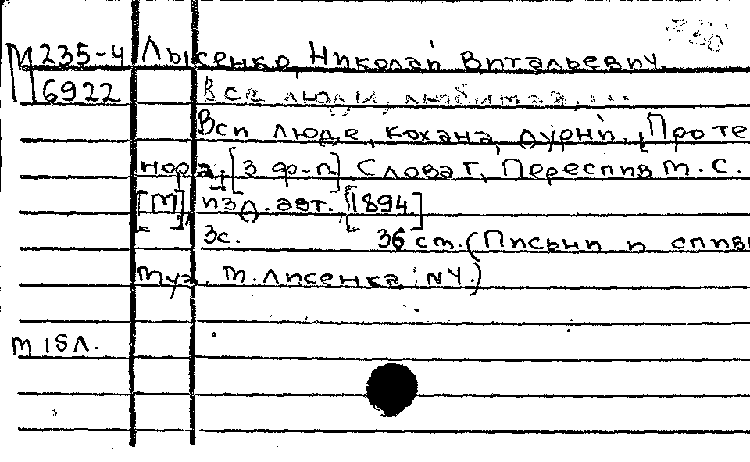 М 235-4 Лысенко, Николай Витальевич.
6922 Все люди, любимая, ...
Всп люде, кохана, дурнп. Про те
нора. [З ф-п] Слова Г, Переспив м. С.
[М], пзд. авт., [1894.]
3с. 36 ст. (Писънп п сппв
муз. М. Лисенка: №4.)
М 15Л.